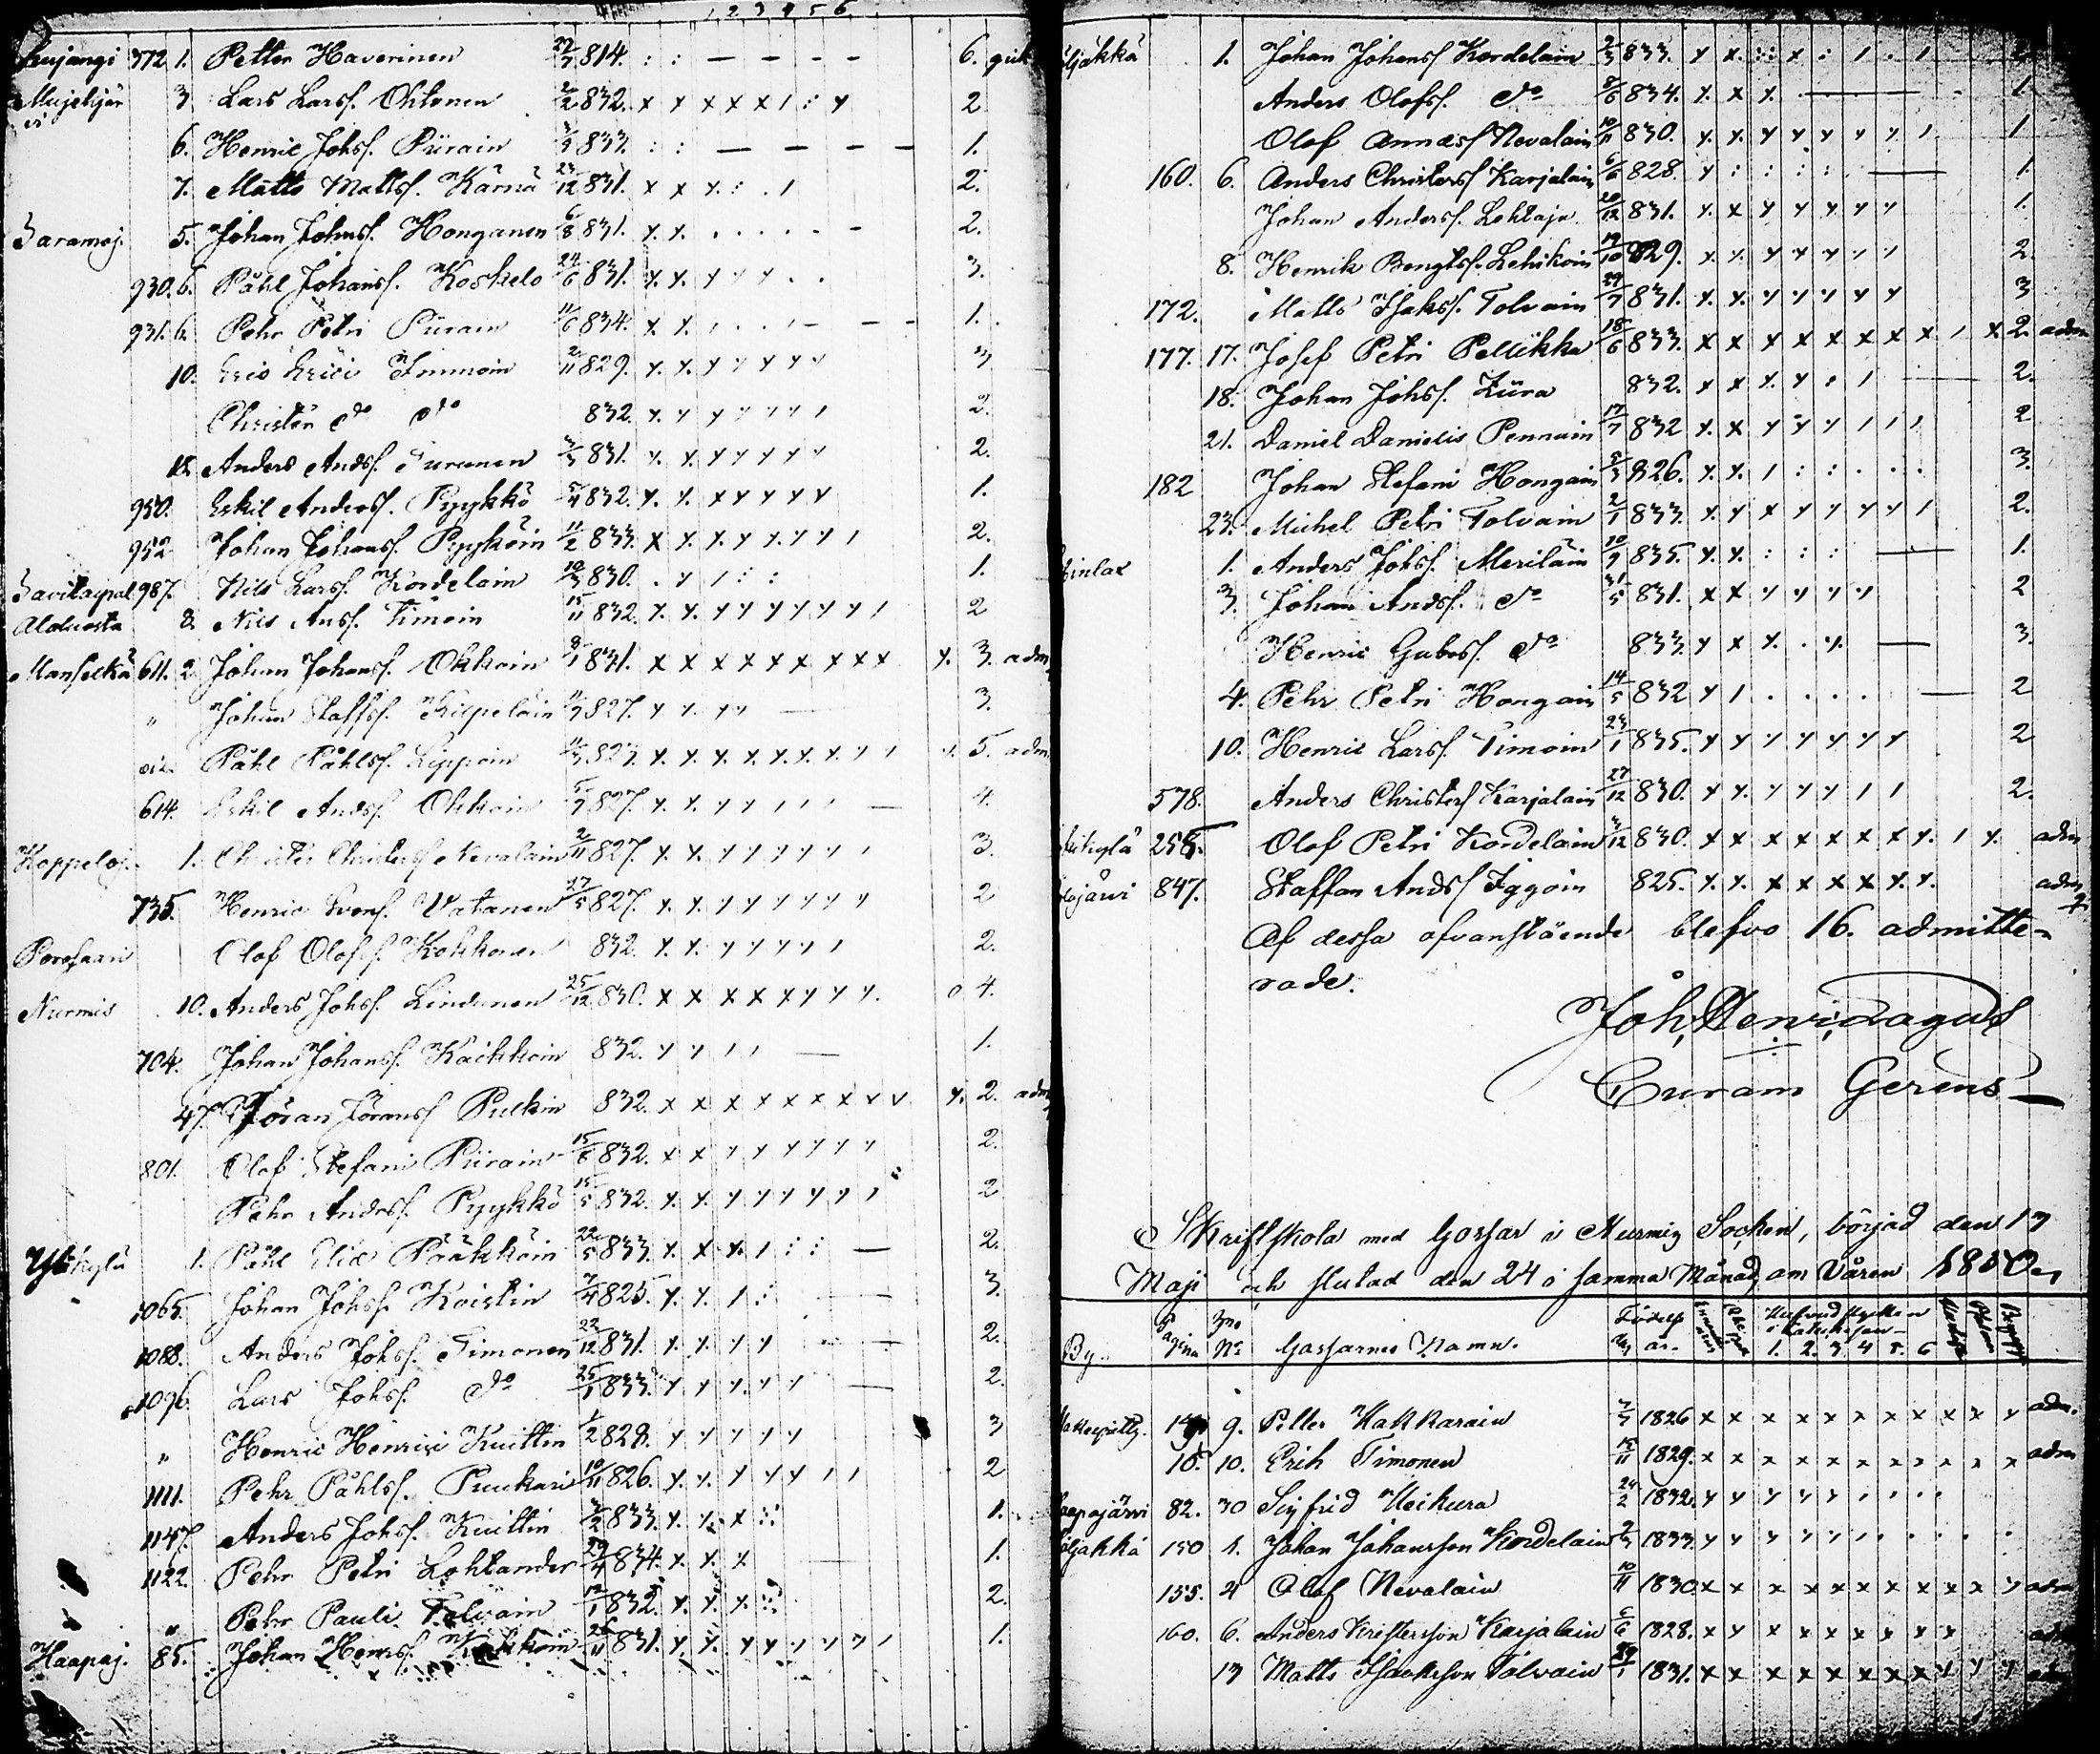 1 2 3 4 5 6
372 1. Petter Haverinen 22/7 814. : : — — — — 6.
3 Lars Larss. Ohtonen 2/2 832. x x x x x / : x 2
6. Henric Johss. Piirain 832 : : — — — — 1.
7. Matts Mattss. Kärnä 23/12 831. x x x : . / 2.
Saramoj. 5. Johan Johnss. Honganen 6/8 831. x. x. . . . . . - 2.
930. 6. Påhl Johanss. Koskelo 24/6 831. x. x. x x x . . 3.
931. 6. Pehr Petri Piirain 11/6 834. x. x. 1.
10. Eric Erici Immoin 2/11 829. x. x. x x x x x 3
Christer do do 832. x. x x x x x / 2.
Anders Andss. Turunen 3/3 831. x. x. x x x x x 2.
950. Eskil Anderss. Pyykkö 5/4 832. x. x. x x x x x 1.
952 Johan Johanss. Pyyköin 11/2 833. x x. x. x x. x x / 2.
987. Nils Larss. Kordelain 10/3 830. . x / : : 1.
8. Nils Anss. Timoin 15/11 832. x. x. x x x x x x / 2
611. 2. Johan Johanss. Okkoin 8/1 831. x x x x x x x x x x. 3. adm
" Johan Staffss. Kilpeläin 827. x x. x x — 3.
Påhl Påhlss. Lippoin 823. x. x. x. x. x. x. x. x / x. 5. adm.
614. Eskil Andss. Okkoin 5/7 827. x. x. x x / / / — 4.
Koppeloj. 1. Christer Christerss Nevalain 2/11 827. x. x. x x x x x / 3.
735. Henric Svens. Vatanen 27/5 827. x. x. x x x x x 2
Porosaari Olof Olofss. Kokkonen 832. x. x. x x x x / 2.
Nurmis 10. Anders Johss. Lindunen 25/12 830. x x x x x x x x. 0 4.
704. Johan Johanss. Kaikkoin 832. x x / / — 1.
47. Jöran Jöranss Pulkin 832. x x x x x x x x x. 2. adm
801. Olof Stefani Piirain 15/6 832. x x x x x x x x 2.
Pehr Anderss. Pyykkö 15/5 832. x. x. x x x x x / 2
1. Påhl Eliæ Pääkköin 22/5 833. x. x. x. / : : — 2.
1065. Johan Johss. Koistin 7/4 825. x. x. / : — 3.
1088. Anders Johss. Timonen 22/12 831. x x. x x — — 2.
1096. Lars Johss. do 25/1 833. x x x. x x — 2.
" Henric Henrici Kuittin 1/2 828. x x x x x 3
1111. Pehr Påhlss. Puukari 10/11 826. x. x. x x x / / 2
1147. Anders Johss. Kuittin 2/2 833. x. x. x 1.
1122. Pehr Petri Lohtander 29/4 834. x x. x — 1.
" Pehr Pauli Tolvain 12/1 832. x. x. x. 2.
Haapaj. 85. Johan Henrss. 831. x. x. x x x x x / 1.
1. Johan Johanss Kordelain 2/3 833. x x. : : x : / . /
Anders Olofss. do 8/6 834. x. x x. — 1.
Olof Anderss Nevalain 10/11 830. x. x. x x x x x. / 1
160. 6. Anders Christerss Karjalain 6/6 828. x : : : : — 1.
Johan Anderss. Lehtaja 20/12 831. x. x x x x x x 1.
8. Henrik Bengtss. Lehikoin 19/10 829. x. x. x x x x x 2.
172. Matts Isakss. Tolvain 29/7 831. x. x. x x x x x 3
177. 17. Josef Petri Pellikka 18/6 833. x x x x x x x x / x 2. adm
18. Johan Johss. Kiira 832. x x x. x : / — 2.
21. Daniel Danielis Pennain 17/7 832 x. x x x x / / / 2
182 Johan Stefani Hongain 3/3 826. x. x. / : : . . . 3.
23. Michel Petri Tolvain 2/1 833. x. x x x x x x / 2.
1. Anders Johss. Meriläin 10/9 835. x. x. : : : — 1.
3. Johan Andss. do 31/5 831. x x x x x x 2
Henric Gabrss. do 833 x x x. . x. — 3.
4. Pehr Petri Hongain 14/5 832 x / . . . . — 2
10. Henric Larss. Timoin 23/1 835. x x x x x x x 2
578. Anders Christerss Karjalain 27/12 830. x x. x x x / / 2.
258. Olof Petri Kordelain 3/12 830. x x x x x x x x. / x. adm
847. Staffan Andss Iggoin 825. x. x. x x x x x. x. adm
Af dessa ofvanstående blefvo 16. admitte-
rade.
Joh, Henr, Dagus
Curam Gerens
Skriftskola med Gossar i Nurmis Socken, börjad den 13
Maji och slutad den 24 i samma Månad, om Våren 1850.
By. Pagina No Gossarnes Namn. Födelse år. Hufvudstycken i Katekesen 1. 2. 3. 4 5. 6
9. Petter Kakkarain 1826 x x x x x x x x x x x adm.
15. 10. Erik Timonen 15/11 1829. x x x x x x x x x x x adm
82. 30 Sigfrid Heikura 24/2 1832. x x x x x / / . .
150 1. Johan Johansson Kordelain 2/3 1833. x x x x x / . . . .
155. 4 Olof Nevalain 10/11 1830. x x x x x x x x x x x adm
160. 6. Anders Kristersson Karjalain 6/6 1828. x x x x x x x x x adm
13 Matts Isacksson Tolvain 29/1 1831. x x x x x x x x x x x adm